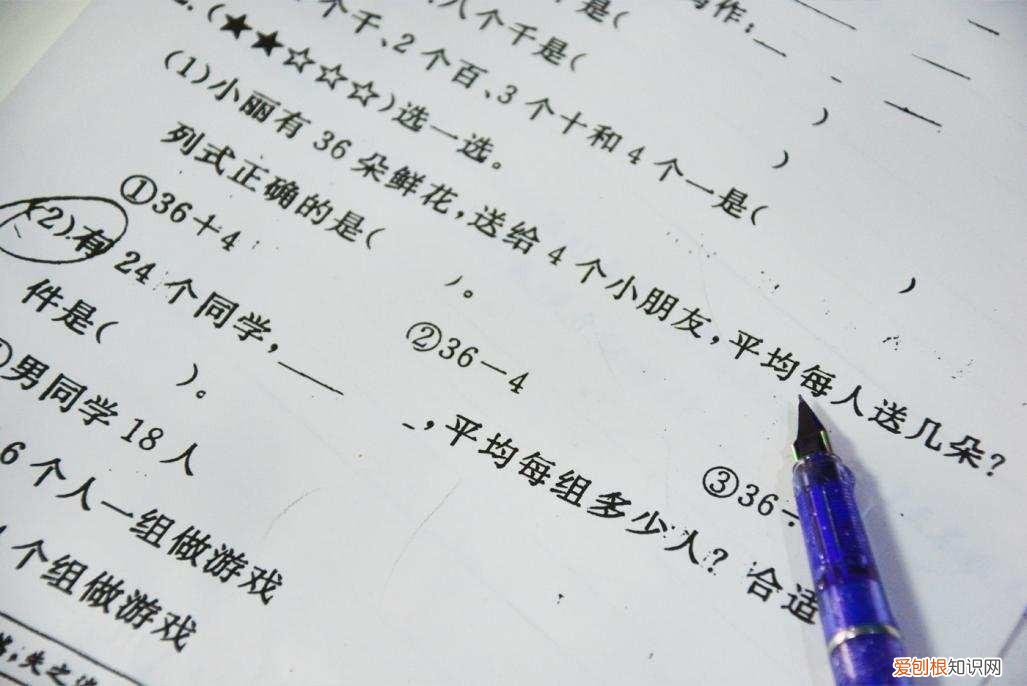 写作：
八个千是(
个千、2个百、3个十和4个一是( )
(★★☆☆☆)选一选。
(1)小丽有36朵鲜花，送给4个小朋友，平均每人送几朵？
列式正确的是( )。
①36＋4 ②36－4 ③36÷
(2)有24个同学， ，平均每组多少人？合适
件是( )。
男同学18人
6个人一组做游戏
个组做游戏
失之
爱刨根知识网